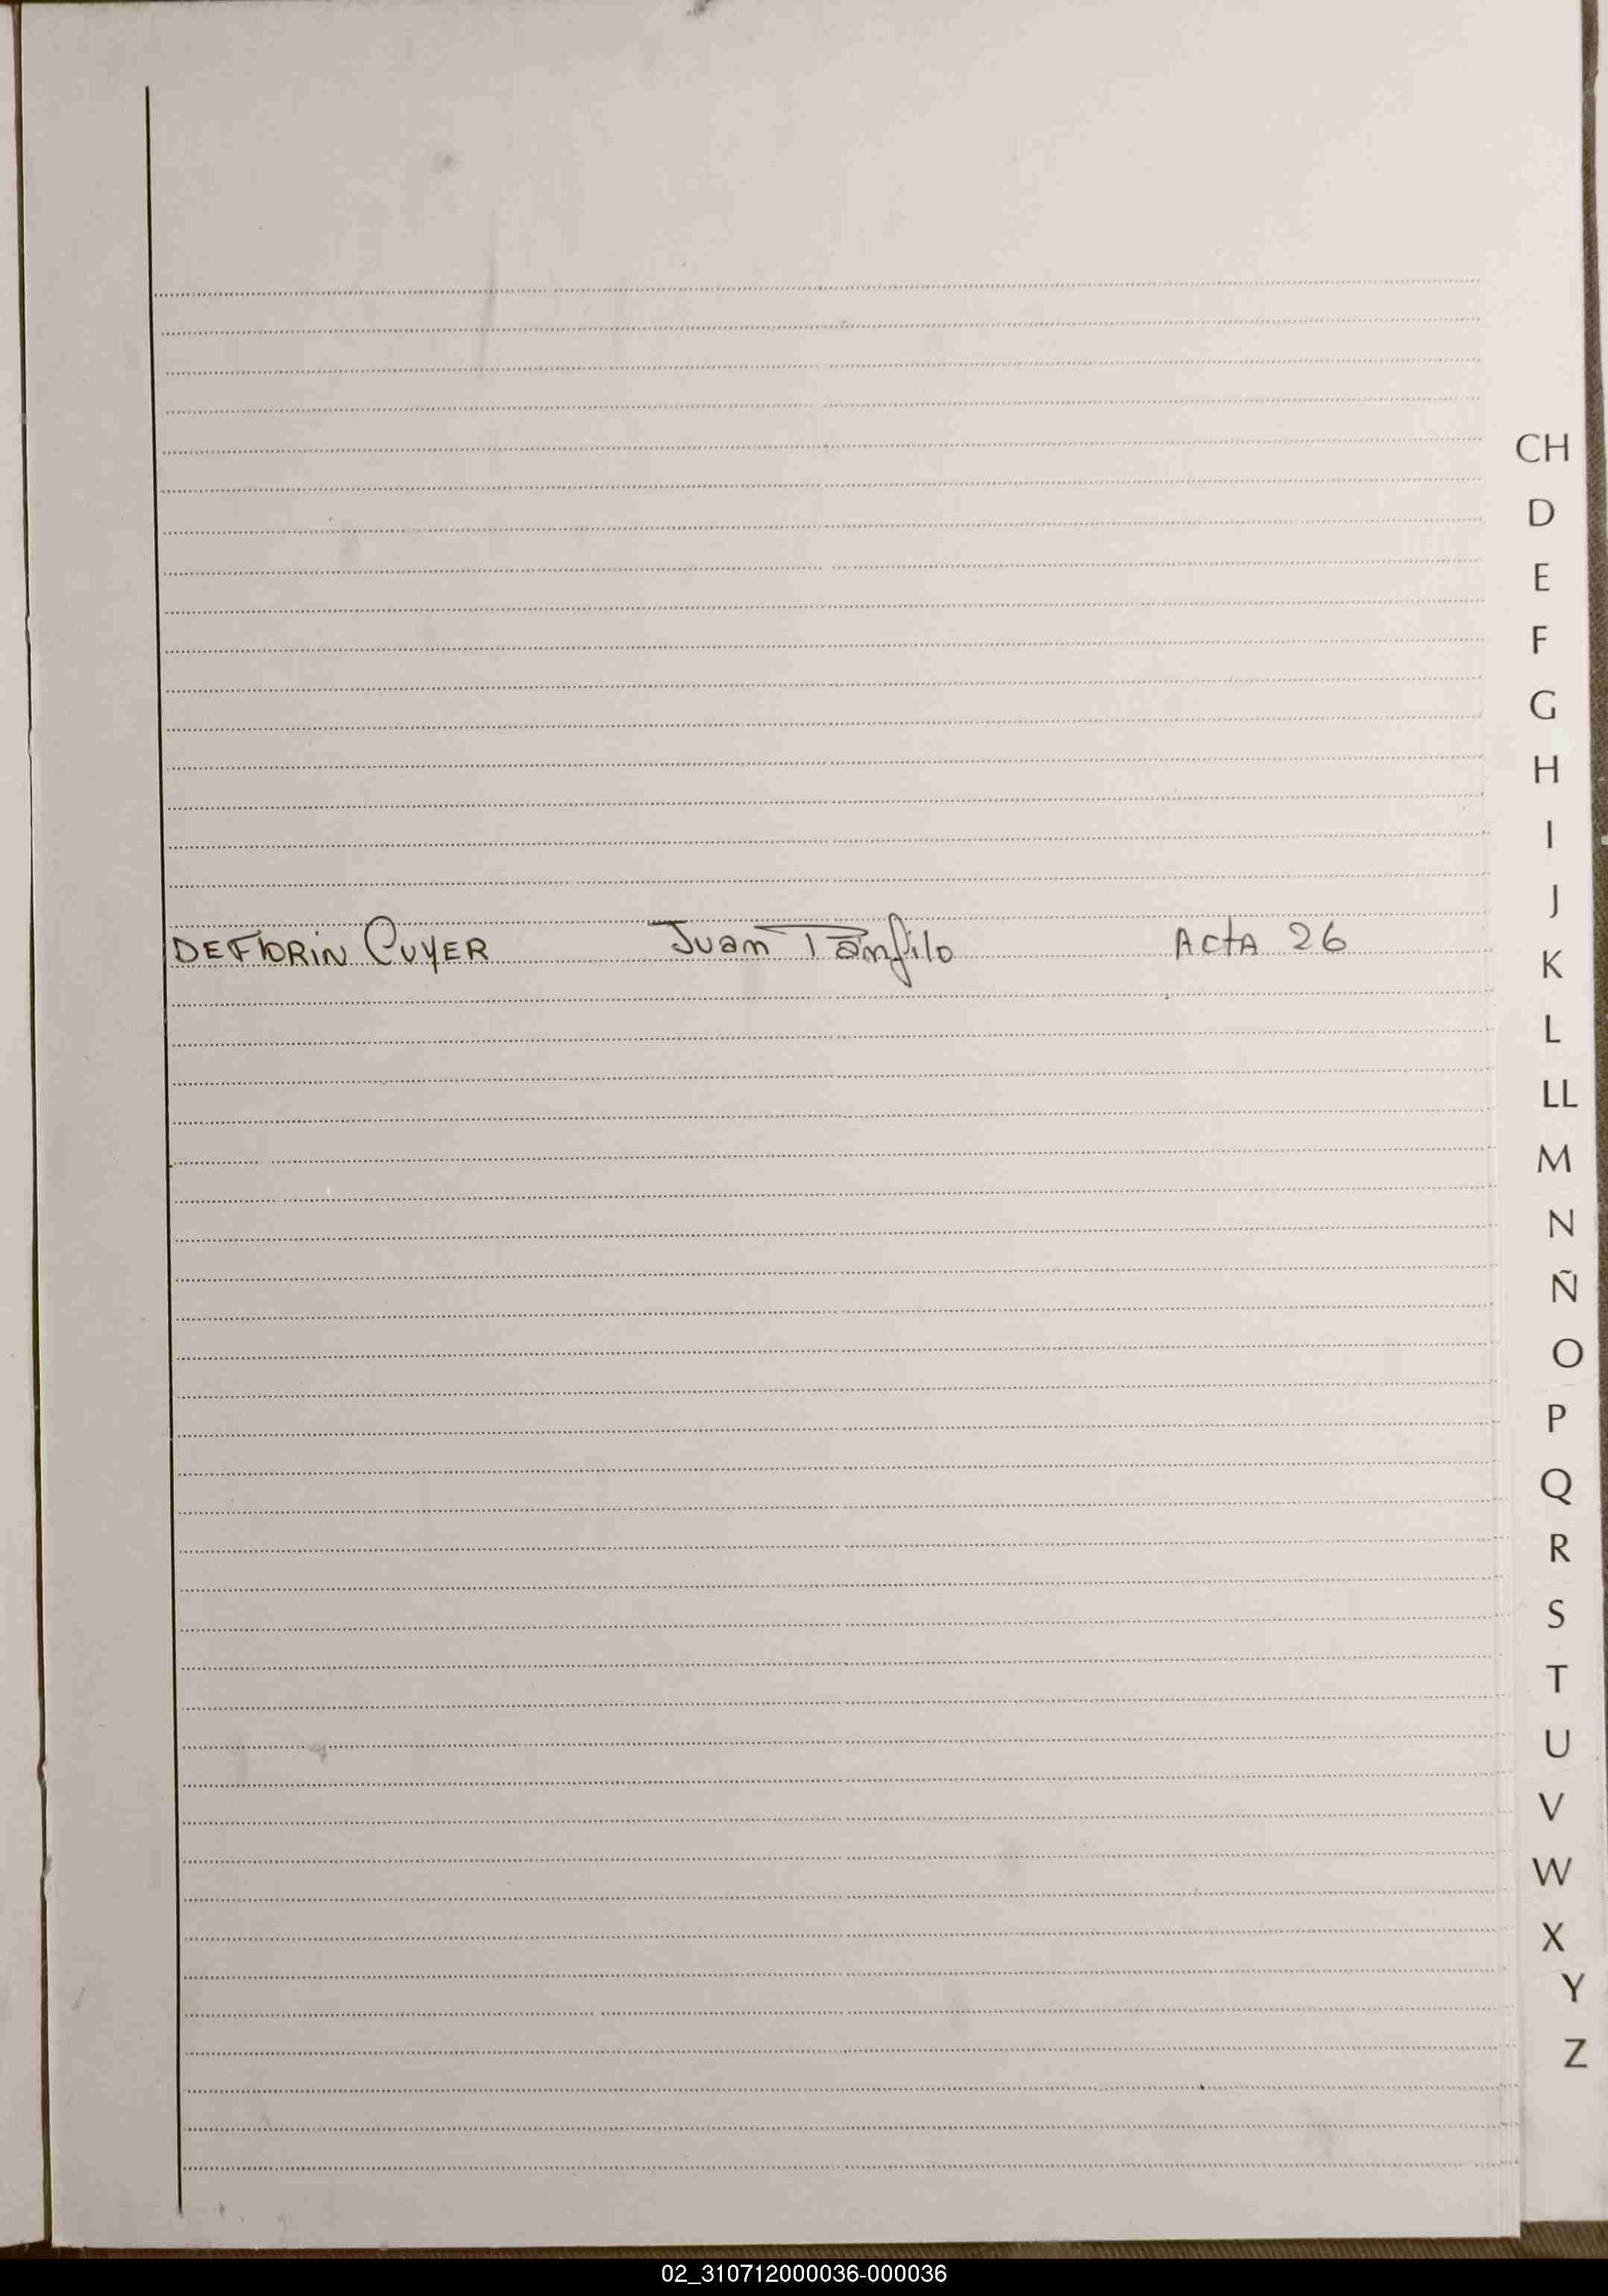 DEFLORIN CUYER Juan Pánfilo ActA 26
CH
D
E
F
G
H
I
J
K
L
LL
M
N
Ñ
O
P
Q
R
S
T
U
V
W
X
Y
Z
02_310712000036-000036